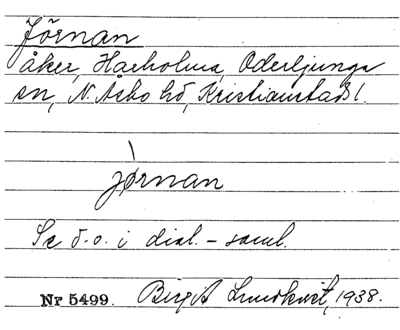 Jörnan
åker, Harholma, Oderljunga
sn, N. Åsbo hd, Kristianstads l.
jørnan
Se ö.-o. i dial.-saml.
Nr 5499. Birgit Lundkvist, 1938.